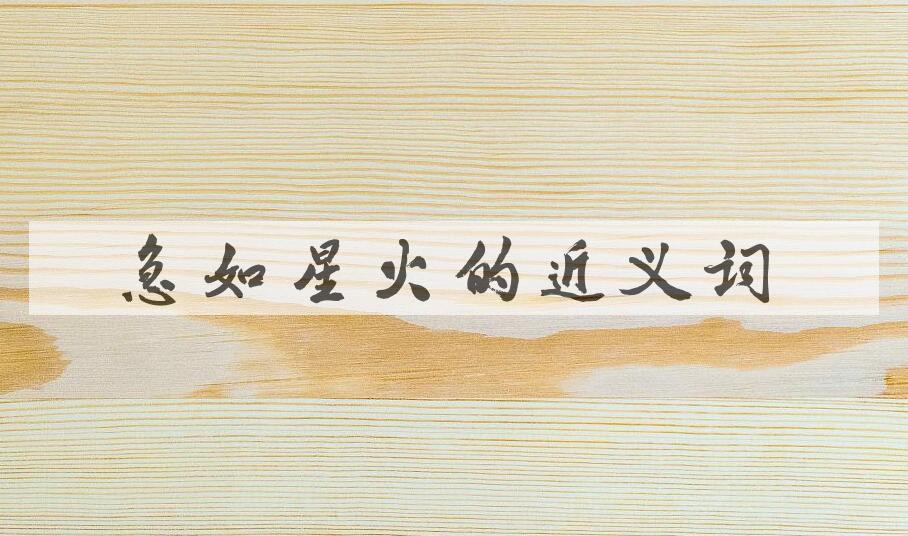 急如星火的近义词